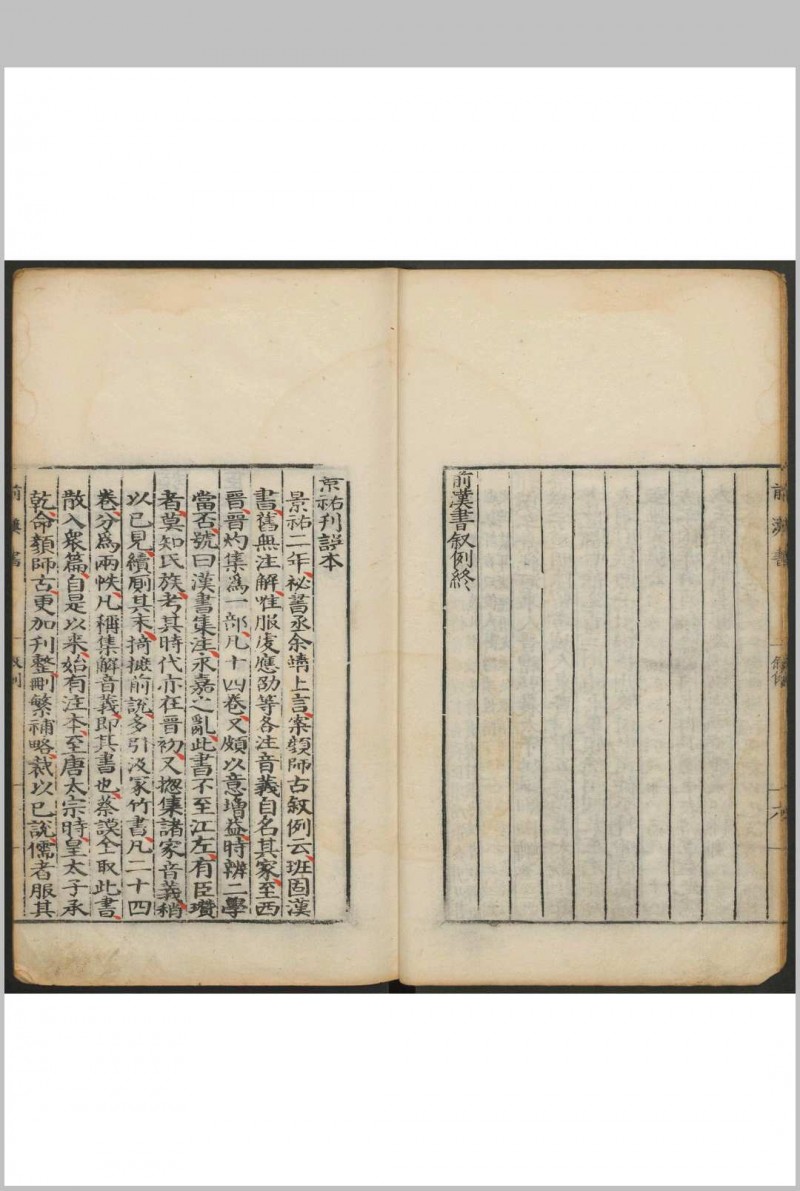 前漢書
叙例
六
前漢書叙例終
景祐刊誤本
景祐二年秘書丞余靖上言案顏師古叙例云班固漢
書舊無注解唯服虔應劭等各注音義自名其家至西
晉晉灼集爲一部凡十四卷又頗以意增益時辨二學
當否號曰漢書集注永嘉之亂此書不至江左有臣瓚
者莫知氏族考其時代亦在晉初又揔集諸家音義稍
以已見續厠其末掎摭前說多引汲冢竹書凡二十四
卷分爲兩帙凡稱集解音義即其書也蔡謨全取此書
散入衆篇自是以来始有注本至唐太宗時皇太子承
乾命顏師古更加刊整刪繁補略裁以已說儒者服其
前漢書
叙例